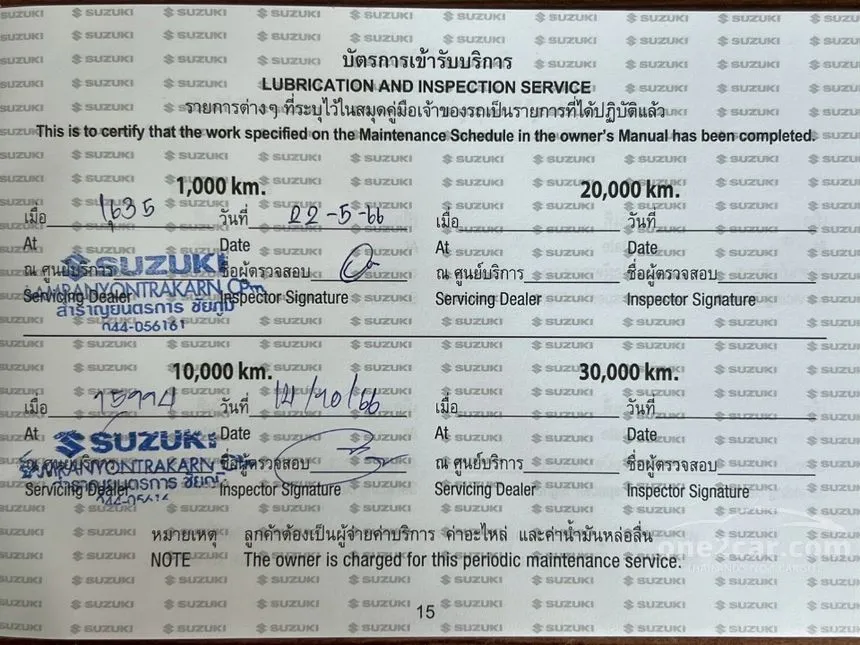 บัตรการเข้ารับบริการ
LUBRICATION AND INSPECTION SERVICE
รายการต่างๆ ที่ระบุไว้ในสมุดคู่มือเจ้าของรถเป็นรายการที่ได้ปฏิบัติแล้ว
This is to certify that the work specified on the Maintenance Schedule in the owner's Manual has been completed.
1,000 km.
เมื่อ 1,635 วันที่ 22-5-66
At Date
ณ ศูนย์บริการ ชื่อผู้ตรวจสอบ
Servicing Dealer Inspector Signature
SUZUKI
SAMRANYONTRAKARN
สำราญยนตรการ ชัยภูมิ
044-056161
20,000 km.
เมื่อ วันที่
At Date
ณ ศูนย์บริการ ชื่อผู้ตรวจสอบ
Servicing Dealer Inspector Signature
10,000 km.
เมื่อ วันที่ 14/10/66
At Date
ณ ศูนย์บริการ ชื่อผู้ตรวจสอบ
Servicing Dealer Inspector Signature
SUZUKI
SAMRANYONTRAKARN
สำราญยนตรการ ชัยภูมิ
30,000 km.
เมื่อ วันที่
At Date
ณ ศูนย์บริการ ชื่อผู้ตรวจสอบ
Servicing Dealer Inspector Signature
หมายเหตุ ลูกค้าต้องเป็นผู้จ่ายค่าบริการ ค่าอะไหล่ และค่าน้ำมันหล่อลื่น
NOTE The owner is charged for this periodic maintenance service.
one2car.com
15